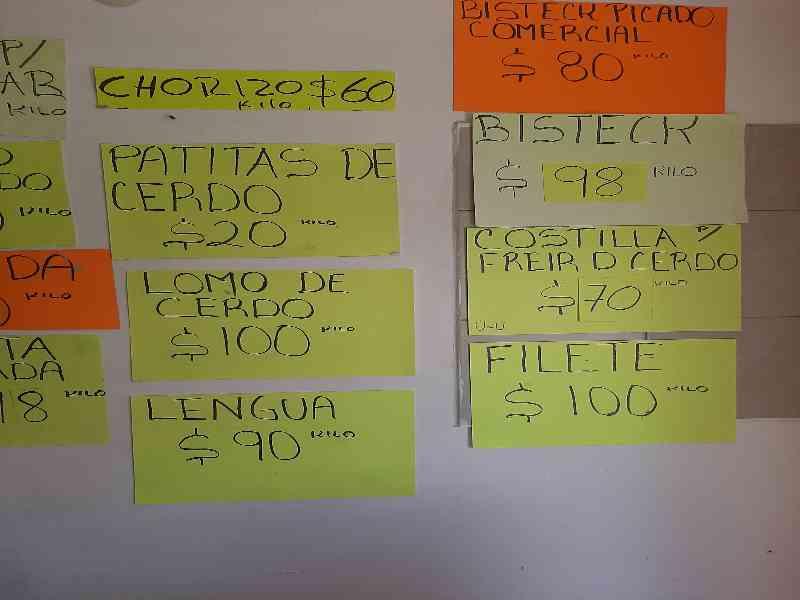 P/
AB
KILO
DO
KILO
DA
KILO
TA
ADA
18 KILO
CHORIZO $60
KILO
PATITAS DE
CERDO
$20 KILO
LOMO DE
CERDO
$100 KILO
LENGUA
$90 KILO
BISTECK PICADO
COMERCIAL
$80 KILO
BISTECK
$98 KILO
COSTILLA P/
FREIR D CERDO
$70 KILO
FILETE
$100 KILO